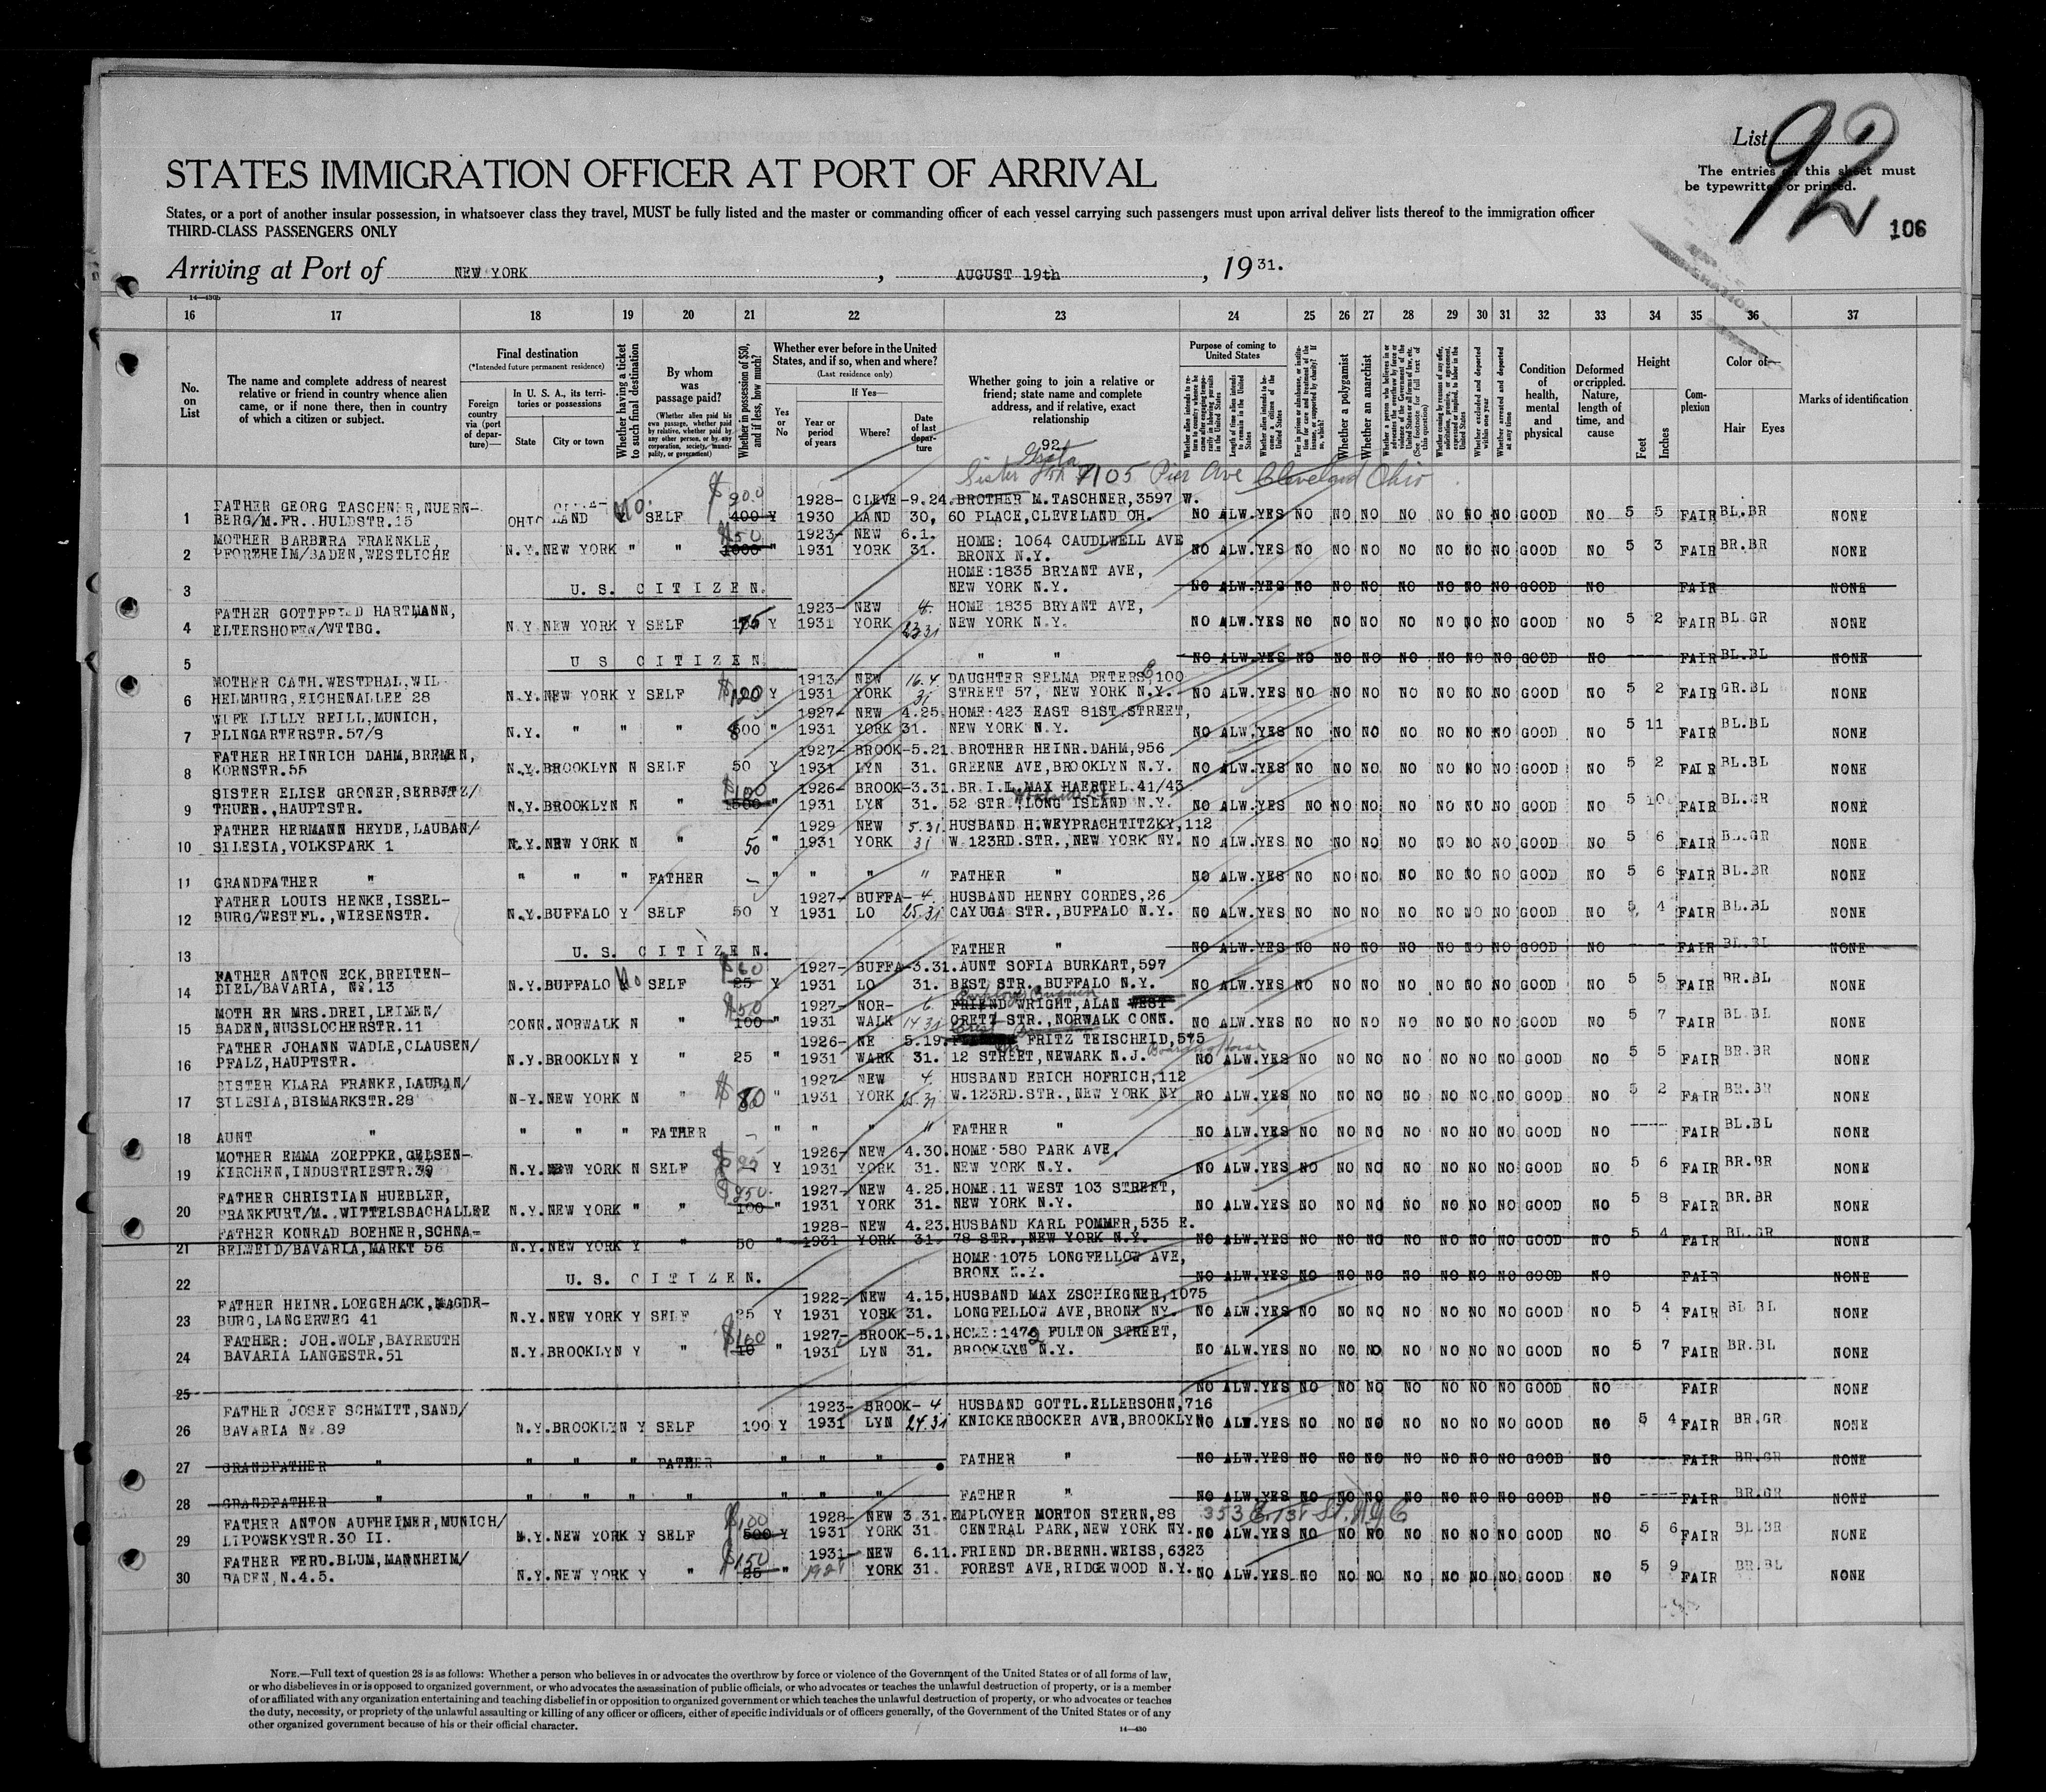 List 92
The entries on this sheet must
be typewritten or printed.
106
STATES IMMIGRATION OFFICER AT PORT OF ARRIVAL
States, or a port of another insular possession, in whatsoever class they travel, MUST be fully listed and the master or commanding officer of each vessel carrying such passengers must upon arrival deliver lists thereof to the immigration officer
THIRD-CLASS PASSENGERS ONLY
Arriving at Port of NEW YORK, AUGUST 19th, 1931.
14—430b
16 17 18 19 20 21 22 23 24 25 26 27 28 29 30 31 32 33 34 35 36 37
No. on List
The name and complete address of nearest relative or friend in country whence alien came, or if none there, then in country of which a citizen or subject.
Final destination
(*Intended future permanent residence)
Foreign country via (port of departure)—
In U. S. A., its territories or possessions
State City or town
Whether having a ticket to such final destination
By whom was passage paid?
(Whether alien paid his own passage, whether paid by relative, whether paid by any other person, or by any corporation, society, municipality, or government)
Whether in possession of $50, and if less, how much?
Whether ever before in the United States, and if so, when and where?
(Last residence only)
Yes or No
If Yes—
Year or period of years Where? Date of last departure
Whether going to join a relative or friend; state name and complete address, and if relative, exact relationship
92
Purpose of coming to United States
Whether alien intends to return to country whence he came after engaging temporarily in laboring pursuits in the United States
Length of time alien intends to remain in the United States
Whether alien intends to become a citizen of the United States
Ever in prison or almshouse, or institution for care and treatment of the insane, or supported by charity? If so, which?
Whether a polygamist
Whether an anarchist
Whether a person who believes in or advocates the overthrow by force or violence of the Government of the United States or all forms of law, etc. (See footnote for full text of this question)
Whether coming by reason of any offer, solicitation, promise, or agreement, expressed or implied, to labor in the United States
Whether excluded and deported within one year
Whether arrested and deported at any time
Condition of health, mental and physical
Deformed or crippled. Nature, length of time, and cause
Height
Feet Inches
Complexion
Color of—
Hair Eyes
Marks of identification
Sister 7105 Pier Ave Cleveland Ohio
1 FATHER GEORG TASCHNER, NUERN-
BERG/M.FR..HULDSTR.15 OHIO LAND No. SELF $900 400 Y 1928- 1930 CLEVE- LAND 9.24. 30, BROTHER M.TASCHNER,3597 W.
60 PLACE,CLEVELAND OH. NO ALW.YES NO NO NO NO NO NO NO GOOD NO 5 5 FAIR BL.BR NONE
2 MOTHER BARBERA FRAENKLE,
PFORZHEIM/BADEN,WESTLICHE N.Y. NEW YORK " " $50 1000 " 1923- 1931 NEW YORK 6.1. 31. HOME: 1064 CAUDLWELL AVE
BRONX N.Y. NO ALW.YES NO NO NO NO NO NO NO GOOD NO 5 3 FAIR BR.BR NONE
3 U. S. CITIZEN. HOME:1835 BRYANT AVE,
NEW YORK N.Y. NO ALW.YES NO NO NO NO NO NO NO GOOD NO FAIR NONE
4 FATHER GOTTFRIED HARTMANN,
ELTERSHOFEN/WTTBG. N.Y. NEW YORK Y SELF 75 Y 1923- 1931 NEW YORK 4. 23.31 HOME 1835 BRYANT AVE,
NEW YORK N.Y. NO ALW.YES NO NO NO NO NO NO NO GOOD NO 5 2 FAIR BL GR NONE
5 U S CITIZEN " " NO ALW.YES NO NO NO NO NO NO NO GOOD NO ---- FAIR BL.BL NONE
6 MOTHER CATH.WESTPHAL,WIL
HELMBURG,EICHENALLEE 28 N.Y. NEW YORK Y SELF $120 Y 1913- 1931 NEW YORK 16.4 31 DAUGHTER SELMA PETERS,100 E
STREET 57, NEW YORK N.Y. NO ALW.YES NO NO NO NO NO NO NO GOOD NO 5 2 FAIR GR.BL NONE
7 WIFE LILLY REILL,MUNICH,
PLINGARTERSTR.57/3 N.Y. " " " 500 " 1927- 1931 NEW YORK 4.25. 31. HOME:423 EAST 81ST STREET,
NEW YORK N.Y. NO ALW.YES NO NO NO NO NO NO NO GOOD NO 5 11 FAIR BL.BL NONE
8 FATHER HEINRICH DAHM,BREMEN,
KORNSTR.55 N.Y. BROOKLYN N SELF 50 Y 1927- 1931 BROOK- LYN 5.21. 31. BROTHER HEINR.DAHM,956
GREENE AVE,BROOKLYN N.Y. NO ALW.YES NO NO NO NO NO NO NO GOOD NO 5 2 FAIR BL.BL NONE
9 SISTER ELISE GRONER,SERBITZ/
THUER.,HAUPTSTR. N.Y. BROOKLYN N " $100 " 1926- 1931 BROOK- LYN 3.31. 31. BR.I.L.MAX HAERTEL.41/43
52 STR.,LONG ISLAND N.Y. NO ALW.YES NO NO NO NO NO NO NO GOOD NO 5 10 FAIR BL.GR NONE
10 FATHER HERMANN HEYDE,LAUBAN/
SILESIA,VOLKSPARK 1 N.Y. NEW YORK N " 50 " 1929 1931 NEW YORK 5.31. 31 HUSBAND H.WEYPRACHTITZKY,112
W.123RD.STR.,NEW YORK NY. NO ALW.YES NO NO NO NO NO NO NO GOOD NO 5 6 FAIR BL.GR NONE
11 GRANDFATHER " " " " FATHER — " " " " FATHER " NO ALW.YES NO NO NO NO NO NO NO GOOD NO 5 6 FAIR BL.BR NONE
12 FATHER LOUIS HENKE,ISSEL-
BURG/WESTFL.,WIESENSTR. N.Y. BUFFALO Y SELF 50 Y 1927- 1931 BUFFA- LO 4. 25.31 HUSBAND HENRY CORDES,26
CAYUGA STR.,BUFFALO N.Y. NO ALW.YES NO NO NO NO NO NO NO GOOD NO 5 4 FAIR BL.BL NONE
13 U. S. CITIZEN. FATHER " NO ALW.YES NO NO NO NO NO NO NO GOOD NO ---- FAIR BL.BL NONE
14 FATHER ANTON ECK,BREITEN-
DIEL/BAVARIA, No.13 N.Y. BUFFALO No SELF $60 25 Y 1927- 1931 BUFFA- LO 3.31. 31. AUNT SOFIA BURKART,597
BEST STR. BUFFALO N.Y. NO ALW.YES NO NO NO NO NO NO NO GOOD NO 5 5 FAIR BR.BL NONE
15 MOTH ER MRS.DREI,LEIMEN/
BADEN,NUSSLOCHERSTR.11 CONN. NORWALK N " $50 100 " 1927- 1931 NOR- WALK 6. 14 31 FRIEND WRIGHT,ALAN WEST
STR.,NORWALK CONN. NO ALW.YES NO NO NO NO NO NO NO GOOD NO 5 7 FAIR BL.BL NONE
16 FATHER JOHANN WADLE,CLAUSEN/
PFALZ,HAUPTSTR. N.Y. BROOKLYN Y " 25 " 1926- 1931 NE WARK 5.19. 31. FRITZ TEISCHEID,575
12 STREET,NEWARK N.J. Boarding House NO ALW.YES NO NO NO NO NO NO NO GOOD NO 5 5 FAIR BR.BR NONE
17 SISTER KLARA FRANKE,LAUBAN/
SILESIA,BISMARKSTR.28 N-Y. NEW YORK N " $ 80 " 1927- 1931 NEW YORK 4. 25.31 HUSBAND ERICH HOFRICH,112
W.123RD.STR.,NEW YORK NY NO ALW.YES NO NO NO NO NO NO NO GOOD NO 5 2 FAIR BR.BR NONE
18 AUNT " " " " FATHER — " " " " FATHER " NO ALW.YES NO NO NO NO NO NO NO GOOD NO ---- FAIR BL.BL NONE
19 MOTHER EMMA ZOEPPKE,GELSEN-
KIRCHEN,INDUSTRIESTR.39 N.Y. NEW YORK N SELF $25 Y 1926- 1931 NEW YORK 4.30. 31. HOME:580 PARK AVE,
NEW YORK N.Y. NO ALW.YES NO NO NO NO NO NO NO GOOD NO 5 6 FAIR BR.BR NONE
20 FATHER CHRISTIAN HUEBLER,
FRANKFURT/M..WITTELSBACHALLEE N.Y. NEW YORK " " $250. 100 " 1927- 1931 NEW YORK 4.25. 31. HOME:11 WEST 103 STREET,
NEW YORK N.Y. NO ALW.YES NO NO NO NO NO NO NO GOOD NO 5 8 FAIR BR.BR NONE
21 FATHER KONRAD BOEHNER,SCHNA-
BELWEID/BAVARIA,MARKT 56 N.Y. NEW YORK Y " 50 " 1928- 1931 NEW YORK 4.23. 31. HUSBAND KARL POMMER,535 E.
78 STR.,NEW YORK N.Y. NO ALW.YES NO NO NO NO NO NO NO GOOD NO 5 4 FAIR BL.GR NONE
22 U. S. CITIZEN. HOME:1075 LONGFELLOW AVE,
BRONX N.Y. NO ALW.YES NO NO NO NO NO NO NO GOOD NO FAIR NONE
23 FATHER HEINR.LOEGEHACK,MAGDE-
BURG,LANGERWEG 41 N.Y. NEW YORK Y SELF 25 Y 1922- 1931 NEW YORK 4.15. 31. HUSBAND MAX ZSCHIEGNER,1075
LONGFELLOW AVE,BRONX NY. NO ALW.YES NO NO NO NO NO NO NO GOOD NO 5 4 FAIR BL BL NONE
24 FATHER: JOH.WOLF,BAYREUTH
BAVARIA LANGESTR.51 N.Y. BROOKLYN Y " $100 10 " 1927- 1931 BROOK- LYN 5.1. 31. HOME:1472 FULTON STREET,
BROOKLYN N.Y. NO ALW.YES NO NO NO NO NO NO NO GOOD NO 5 7 FAIR BR.BL NONE
25 NO ALW.YES NO NO NO NO NO NO NO GOOD NO FAIR NONE
26 FATHER JOSEF SCHMITT,SAND/
BAVARIA No.89 N.Y. BROOKLYN Y SELF 100 Y 1923- 1931 BROOK- LYN 4 24.31 HUSBAND GOTTL.ELLERSOHN,716
KNICKERBOCKER AVE,BROOKLYN NO ALW.YES NO NO NO NO NO NO NO GOOD NO 5 4 FAIR BR.GR NONE
27 GRANDFATHER " " " " FATHER " " " FATHER " NO ALW.YES NO NO NO NO NO NO NO GOOD NO ---- FAIR BR.GR NONE
28 GRANDFATHER " " " " " " " " FATHER " NO ALW.YES NO NO NO NO NO NO NO GOOD NO ---- FAIR BR.GR NONE
29 FATHER ANTON AUFHEIMER,MUNICH/
LIPOWSKYSTR.30 II. N.Y. NEW YORK Y SELF $100 500 Y 1928- 1931 NEW YORK 3.31. 31 EMPLOYER MORTON STERN,88
CENTRAL PARK,NEW YORK NY. 353 E. St. NYC NO ALW.YES NO NO NO NO NO NO NO GOOD NO 5 6 FAIR BL.BR NONE
30 FATHER FERD.BLUM,MANNHEIM/
BADEN,N.4.5. N.Y. NEW YORK Y " $150 25 " 1931- NEW YORK 6.11. 31. FRIEND DR.BERNH.WEISS,6323
FOREST AVE,RIDGEWOOD N.Y. NO ALW.YES NO NO NO NO NO NO NO GOOD NO 5 9 FAIR BR.BL NONE
NOTE.—Full text of question 28 is as follows: Whether a person who believes in or advocates the overthrow by force or violence of the Government of the United States or of all forms of law,
or who disbelieves in or is opposed to organized government, or who advocates the assassination of public officials, or who advocates or teaches the unlawful destruction of property, or is a member
of or affiliated with any organization entertaining and teaching disbelief in or opposition to organized government or which teaches the unlawful destruction of property, or who advocates or teaches
the duty, necessity, or propriety of the unlawful assaulting or killing of any officer or officers, either of specific individuals or of officers generally, of the Government of the United States or of any
other organized government because of his or their official character.
14—430